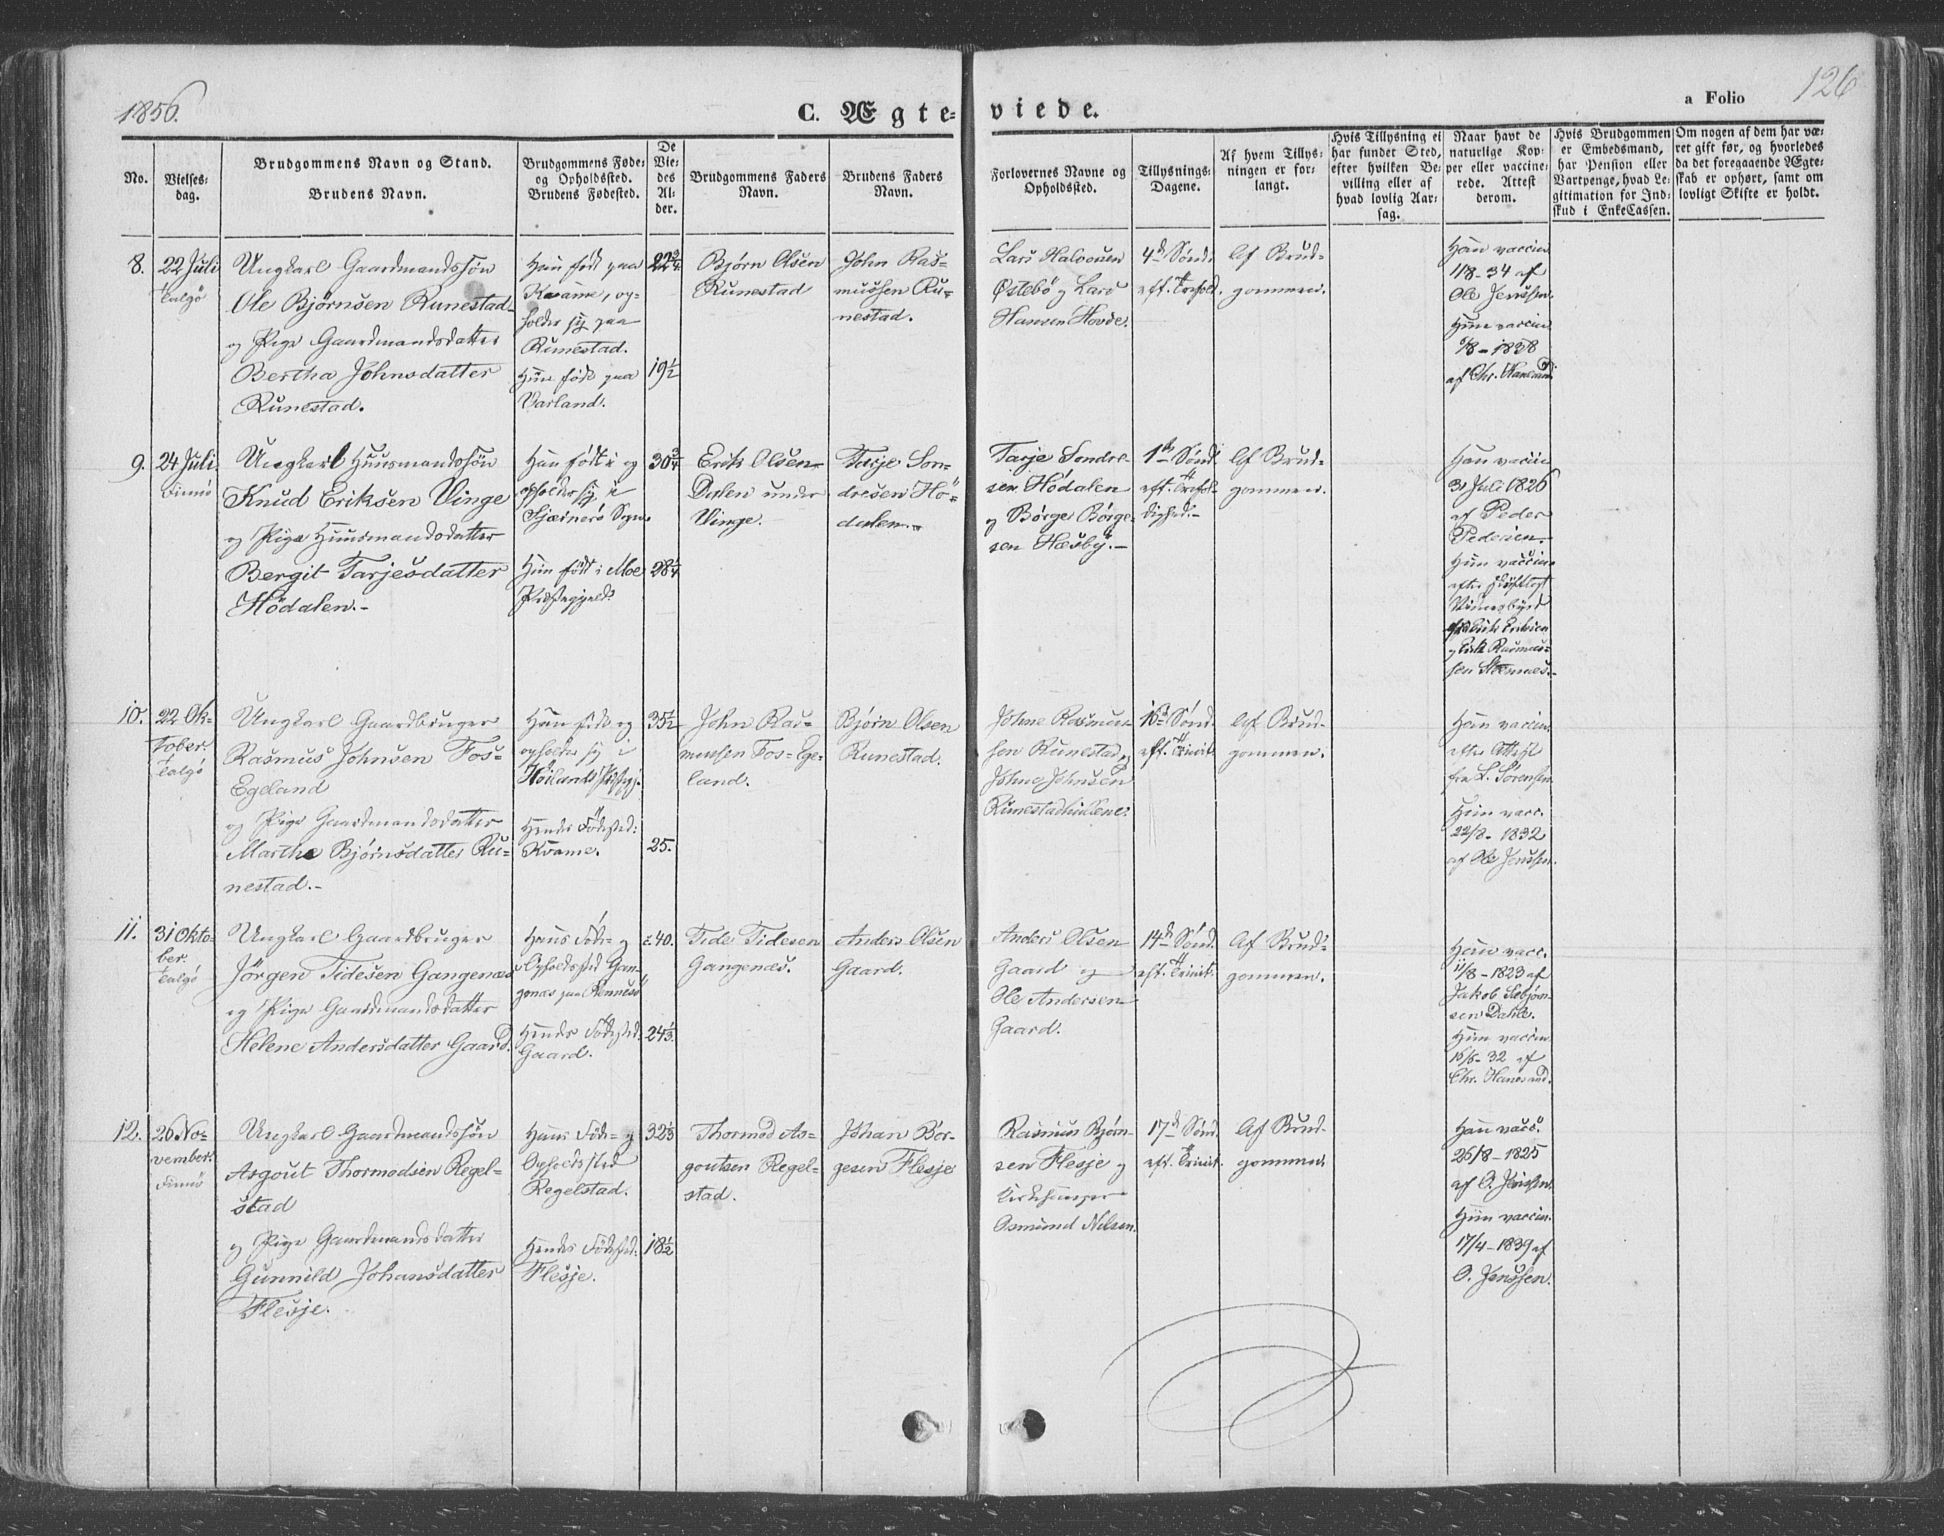 1856.
C. Ægteviede.
a Folio 126
No.
Vielsesdag.
Brudgommens Navn og Stand.
Brudens Navn.
Brudgommens Føde-
og Opholdssted.
Brudens Fødested.
De
Vie-
des
Al-
der.
Brudgommens Faders
Navn.
Brudens Faders
Navn.
Forlovernes Navne og
Opholdsted.
Tillysnings-
Dagene.
Af hvem Tillys-
ningen er for-
langt.
Hvis Tillysning ei
har fundet Sted,
efter hvilken Be-
villing eller af
hvad lovlig Aar-
sag.
Naar havt de
naturlige Kop-
per eller vaccine-
rede. Attest
derom.
Hvis Brudgommen
er Embedsmand,
har Pension eller
Vartpenge, hvad Le-
gitimation for Ind-
skud i EnkeCassen.
Om nogen af dem har væ-
ret gift før, og hvorledes
da det foregaaende Ægte-
skab er ophørt, samt om
lovligt Skifte er holdt.
8.
22 Juli
Talgø
Ungkarl Gaardmandssøn
Ole Bjørnsen Runestad
og Pige Gaardmandsdatter
Bertha Johnsdatter
Runestad.
Han født paa
Kvame, op-
holder sig paa
Runestad.
Hun født paa
Varland.
22 3/4
19 1/2
Bjørn Olsen
Runestad
John Ras-
mussen Ru-
nestad.
Lars Halvorsen
Østebö og Lars
Hansen Hovde.
4de Sönd.
eft. Trefold.
Af Brud-
gommen.
Han vaccin.
1/8-34 af
Ole Jenssen.
Hun vaccin.
/8-1838
af Chr. Hanesand
9.
24 Juli
Finnö
Ungkarl Huusmandssön
Knud Eriksen Vinge
og Pige Huusmandsdatter
Bergit Tarjesdatter
Hödalen.-
Han født i og
opholder sig i
Sjærnerö Sogn.
Hun födt i Moe
Præstegjeld.
30 3/4
28 1/4
Erik Olsen
Dalen under
Vinge.
Tarje Son-
dresen Hö-
dalen.
Tarje Sondre-
sen Hödalen
og Börge Börge-
sen Hæsbÿ.-
1ste Sönd.
eft. Trefol-
dighed.-
Af Brud-
gommen.
Han vaccin.
3 Juli 1826
af Peder
Pedersen.
Hun vaccin.
efter skriftligt
Vidnesbyrd
af Erik Eriksen
og Erik Rasmus-
sen
10.
22 Ok-
tober.
Talgö
Ungkarl Gaardbruger
Rasmus Johnsen Fos-
Egeland
og Pige Gaardmandsdatter
Martha Bjørnsdatter Ru-
nestad.-
Han født og
opholder sig i
Höilands Præstegj.
Hendes Födested:
Kvame.
35 1/2
25.
John Ras-
mussen Fos-Ege-
land.
Bjørn Olsen
Runestad.
Johne Rasmus-
sen Runestad og
Johne Johnsen
Runestad
16de Sönd.
eft. Trinit.
Af Brud-
gommen.
Han vaccin.
efter Attest
fra L. Sörensen
Hun vacc.
22/8-1832
af Ole Jenssen.
11.
31 Okto-
ber.
Talgö
Ungkarl Gaardbruger
Jörgen Tidesen Gangenæs
og Pige Gaardmandsdatter
Helene Andersdatter Gaard.
Hans Föde- og
Opholdssted Gan-
genæs paa Rennesö
Hendes Födested.
Gaard.
c. 40.
24 1/3
Tide Tidesen
Gangenæs.
Anders Olsen
Gaard.
Anders Olsen
Gaard og
Ole Andersen
Gaard.
14de Sönd.
eft. Trinit.
Af Brud-
gommen.
Han vacc.
11/8-1823 af
Jakob Asbjörn-
sen Dahle.
Hun vaccin.
16/6-32 af
Chr. Hanesand.
12.
26 No-
vember.
Finnö
Ungkarl Gaardmandssön
Asgout Thormodsen Regel-
stad
og Pige Gaardmandsdatter
Gunnild Johansdatter
Flesje.
Hans Föde- og
Opholdssted
Regelstad.
Hendes Födested.
Flesje.
32 1/3
18 1/2
Thormod As-
goutsen Regel-
stad.
Johan Bør-
gesen Flesje
Rasmus Bjørn-
sen Flesje og
Kirkesanger
Osmund Nilsen.
17de Sönd.
eft. Trinit.
Af Brud-
gommen.
Han vacc.
26/8-1825
af O. Jenssen.
Hun vaccin.
17/4-1839 af
O. Jenssen.